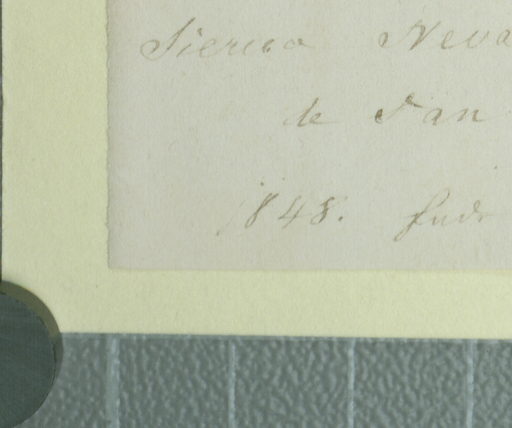 Sierra Neva
de San
1848.